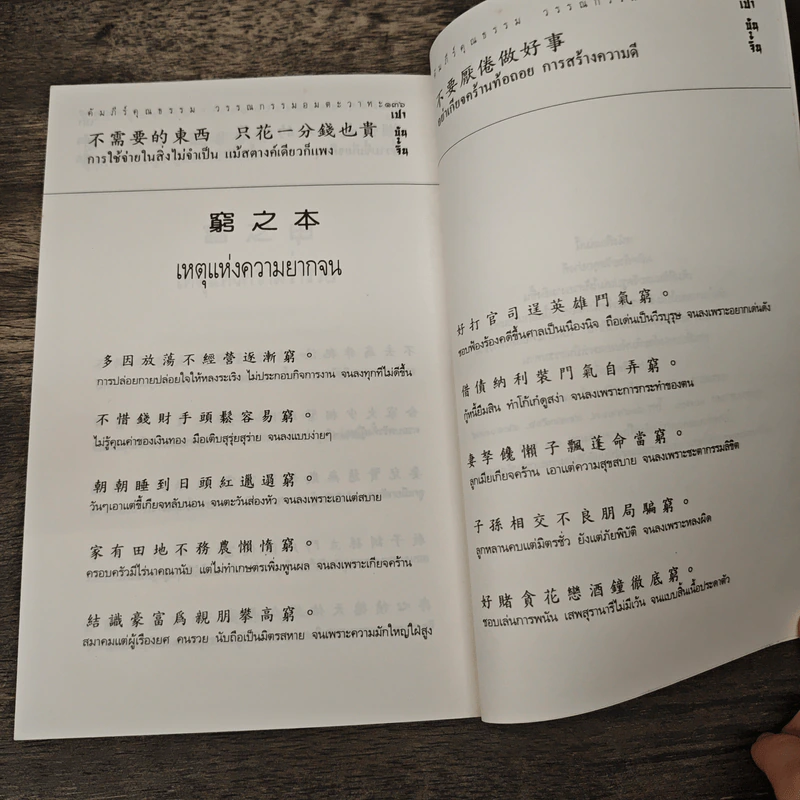 คัมภีร์คุณธรรม วรรณกรรมอมตะวาทะ๑๓๖
เปา
บุ้น
จิ้น
不需要的東西 只花一分錢也貴
การใช้จ่ายในสิ่งไม่จำเป็น แม้สตางค์เดียวก็แพง
窮之本
เหตุแห่งความยากจน
多因放蕩不經營逐漸窮。
การปล่อยกายปล่อยใจให้หลงระเริง ไม่ประกอบกิจการงาน จนลงทุกทีไม่ดีขึ้น
不惜錢財手頭鬆容易窮。
ไม่รู้คุณค่าของเงินทอง มือเติบสุรุ่ยสุร่าย จนลงแบบง่ายๆ
朝朝睡到日頭紅邋遢窮。
วันๆเอาแต่ขี้เกียจหลับนอน จนตะวันส่องหัว จนลงเพราะเอาแต่สบาย
家有田地不務農懶惰窮。
ครอบครัวมีไร่นาคณานับ แต่ไม่ทำเกษตรเพิ่มพูนผล จนลงเพราะเกียจคร้าน
結識豪富爲親朋攀高窮。
สมาคมแต่ผู้เรืองยศ คนรวย นับถือเป็นมิตรสหาย จนเพราะความมักใหญ่ใฝ่สูง
คัมภีร์คุณธรรม วรรณกรรม
เปา
บุ้น
จิ้น
不要厭倦做好事
อย่าเกียจคร้านท้อถอย การสร้างความดี
好打官司逞英雄鬥氣窮。
ชอบฟ้องร้องคดีขึ้นศาลเป็นเนืองนิจ ถือเด่นเป็นวีรบุรุษ จนลงเพราะอยากเด่นดัง
借債納利裝鬥氣自弄窮。
กู้หนี้ยืมสิน ทำโก้เก๋ดูสง่า จนลงเพราะการกระทำของตน
妻孥饞懶子飄蓬命當窮。
ลูกเมียเกียจคร้าน เอาแต่ความสุขสบาย จนลงเพราะชะตากรรมลิขิต
子孫相交不良朋局騙窮。
ลูกหลานคบแต่มิตรชั่ว ยังแต่ภัยพิบัติ จนลงเพราะหลงผิด
好賭貪花戀酒鐘徹底窮。
ชอบเล่นการพนัน เสพสุรานารีไม่มีเว้น จนแบบสิ้นเนื้อประดาตัว